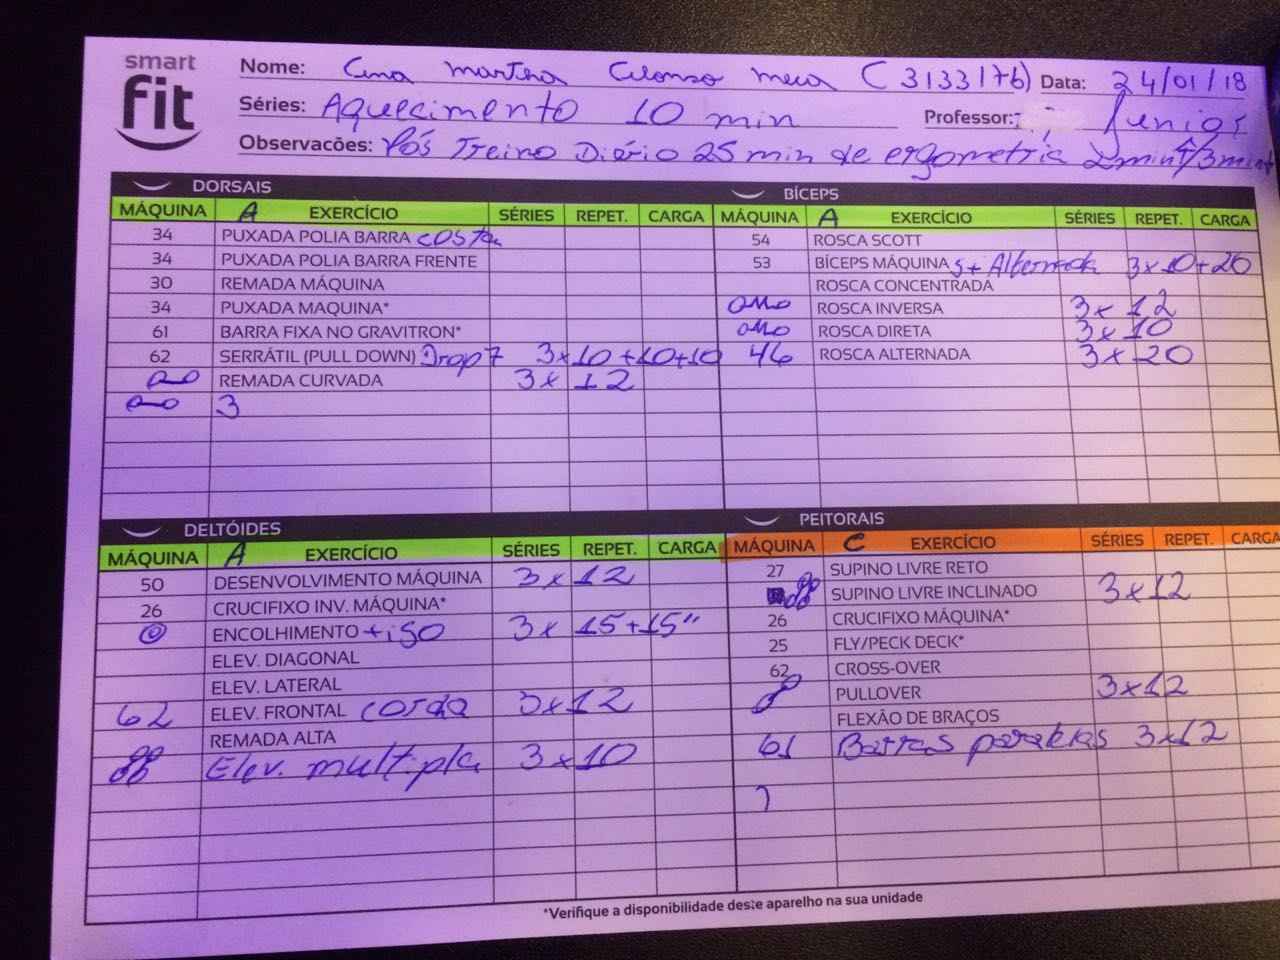 smart
fit
Nome: Martha Alonso (3133176) Data: 24/01/18
Séries: Aquecimento 10 min Professor: Junior
Observacões: Pós Treino Diário 25 min de ergometria 2min
DORSAIS
MÁQUINA A EXERCÍCIO SÉRIES REPET. CARGA
34 PUXADA POLIA BARRA costa
34 PUXADA POLIA BARRA FRENTE
30 REMADA MÁQUINA
34 PUXADA MAQUINA*
61 BARRA FIXA NO GRAVITRON*
62 SERRÁTIL (PULL DOWN) Drop 7 3x10+10+10
REMADA CURVADA 3x 12
3
BÍCEPS
MÁQUINA A EXERCÍCIO SÉRIES REPET. CARGA
54 ROSCA SCOTT
53 BÍCEPS MÁQUINA S+ Alternada 3x10+20
ROSCA CONCENTRADA
ROSCA INVERSA 3x 12
ROSCA DIRETA 3x10
46 ROSCA ALTERNADA 3x20
DELTÓIDES
MÁQUINA A EXERCÍCIO SÉRIES REPET. CARGA
50 DESENVOLVIMENTO MÁQUINA 3x12
26 CRUCIFIXO INV. MÁQUINA*
ENCOLHIMENTO +iso 3x 15+15"
ELEV. DIAGONAL
ELEV. LATERAL
62 ELEV. FRONTAL corda 3x12
REMADA ALTA
Elev. multipla 3x10
PEITORAIS
MÁQUINA C EXERCÍCIO SÉRIES REPET. CARGA
27 SUPINO LIVRE RETO
SUPINO LIVRE INCLINADO 3x12
26 CRUCIFIXO MÁQUINA*
25 FLY/PECK DECK*
62 CROSS-OVER
PULLOVER 3x12
FLEXÃO DE BRAÇOS
61 Barras paralelas 3x12
*Verifique a disponibilidade deste aparelho na sua unidade